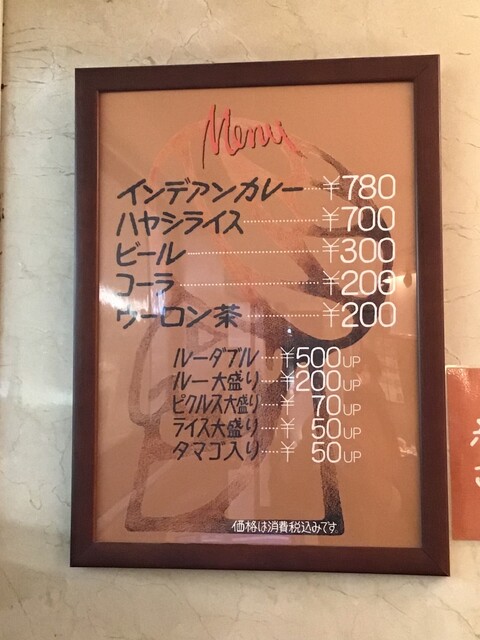 Menu
インデアンカレー……¥780
ハヤシライス……¥700
ビール……¥300
コーラ……¥200
ウーロン茶……¥200
ルーダブル……¥500UP
ルー大盛り……¥200UP
ピクルス大盛り……¥ 70UP
ライス大盛り……¥ 50UP
タマゴ入り……¥ 50UP
価格は消費税込みです。